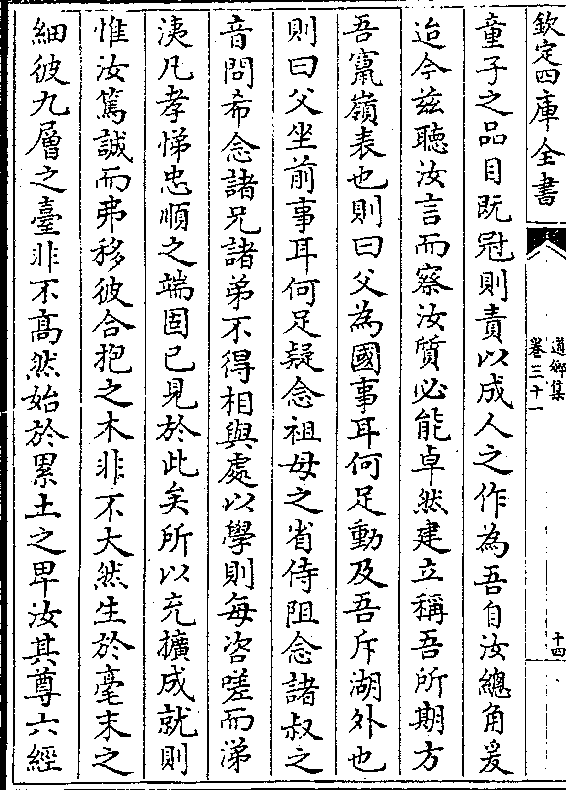 欽定四庫全書
道鄉集
卷三十一
十四
童子之品目既冠則責以成人之作為吾自汝總角爰
迨今兹聽汝言而察汝質必能卓然建立稱吾所期方
吾竄嶺表也則曰父為國事耳何足動及吾斥湖外也
則曰父坐前事耳何足疑念祖母之省侍阻念諸叔之
音問希念諸兄諸弟不得相與處以學則每咨嗟而涕
洟凡孝悌忠順之端固已見於此矣所以充擴成就則
惟汝篤誠而弗移彼合抱之木非不大然生於毫末之
細彼九層之臺非不高然始於累土之卑汝其尊六經